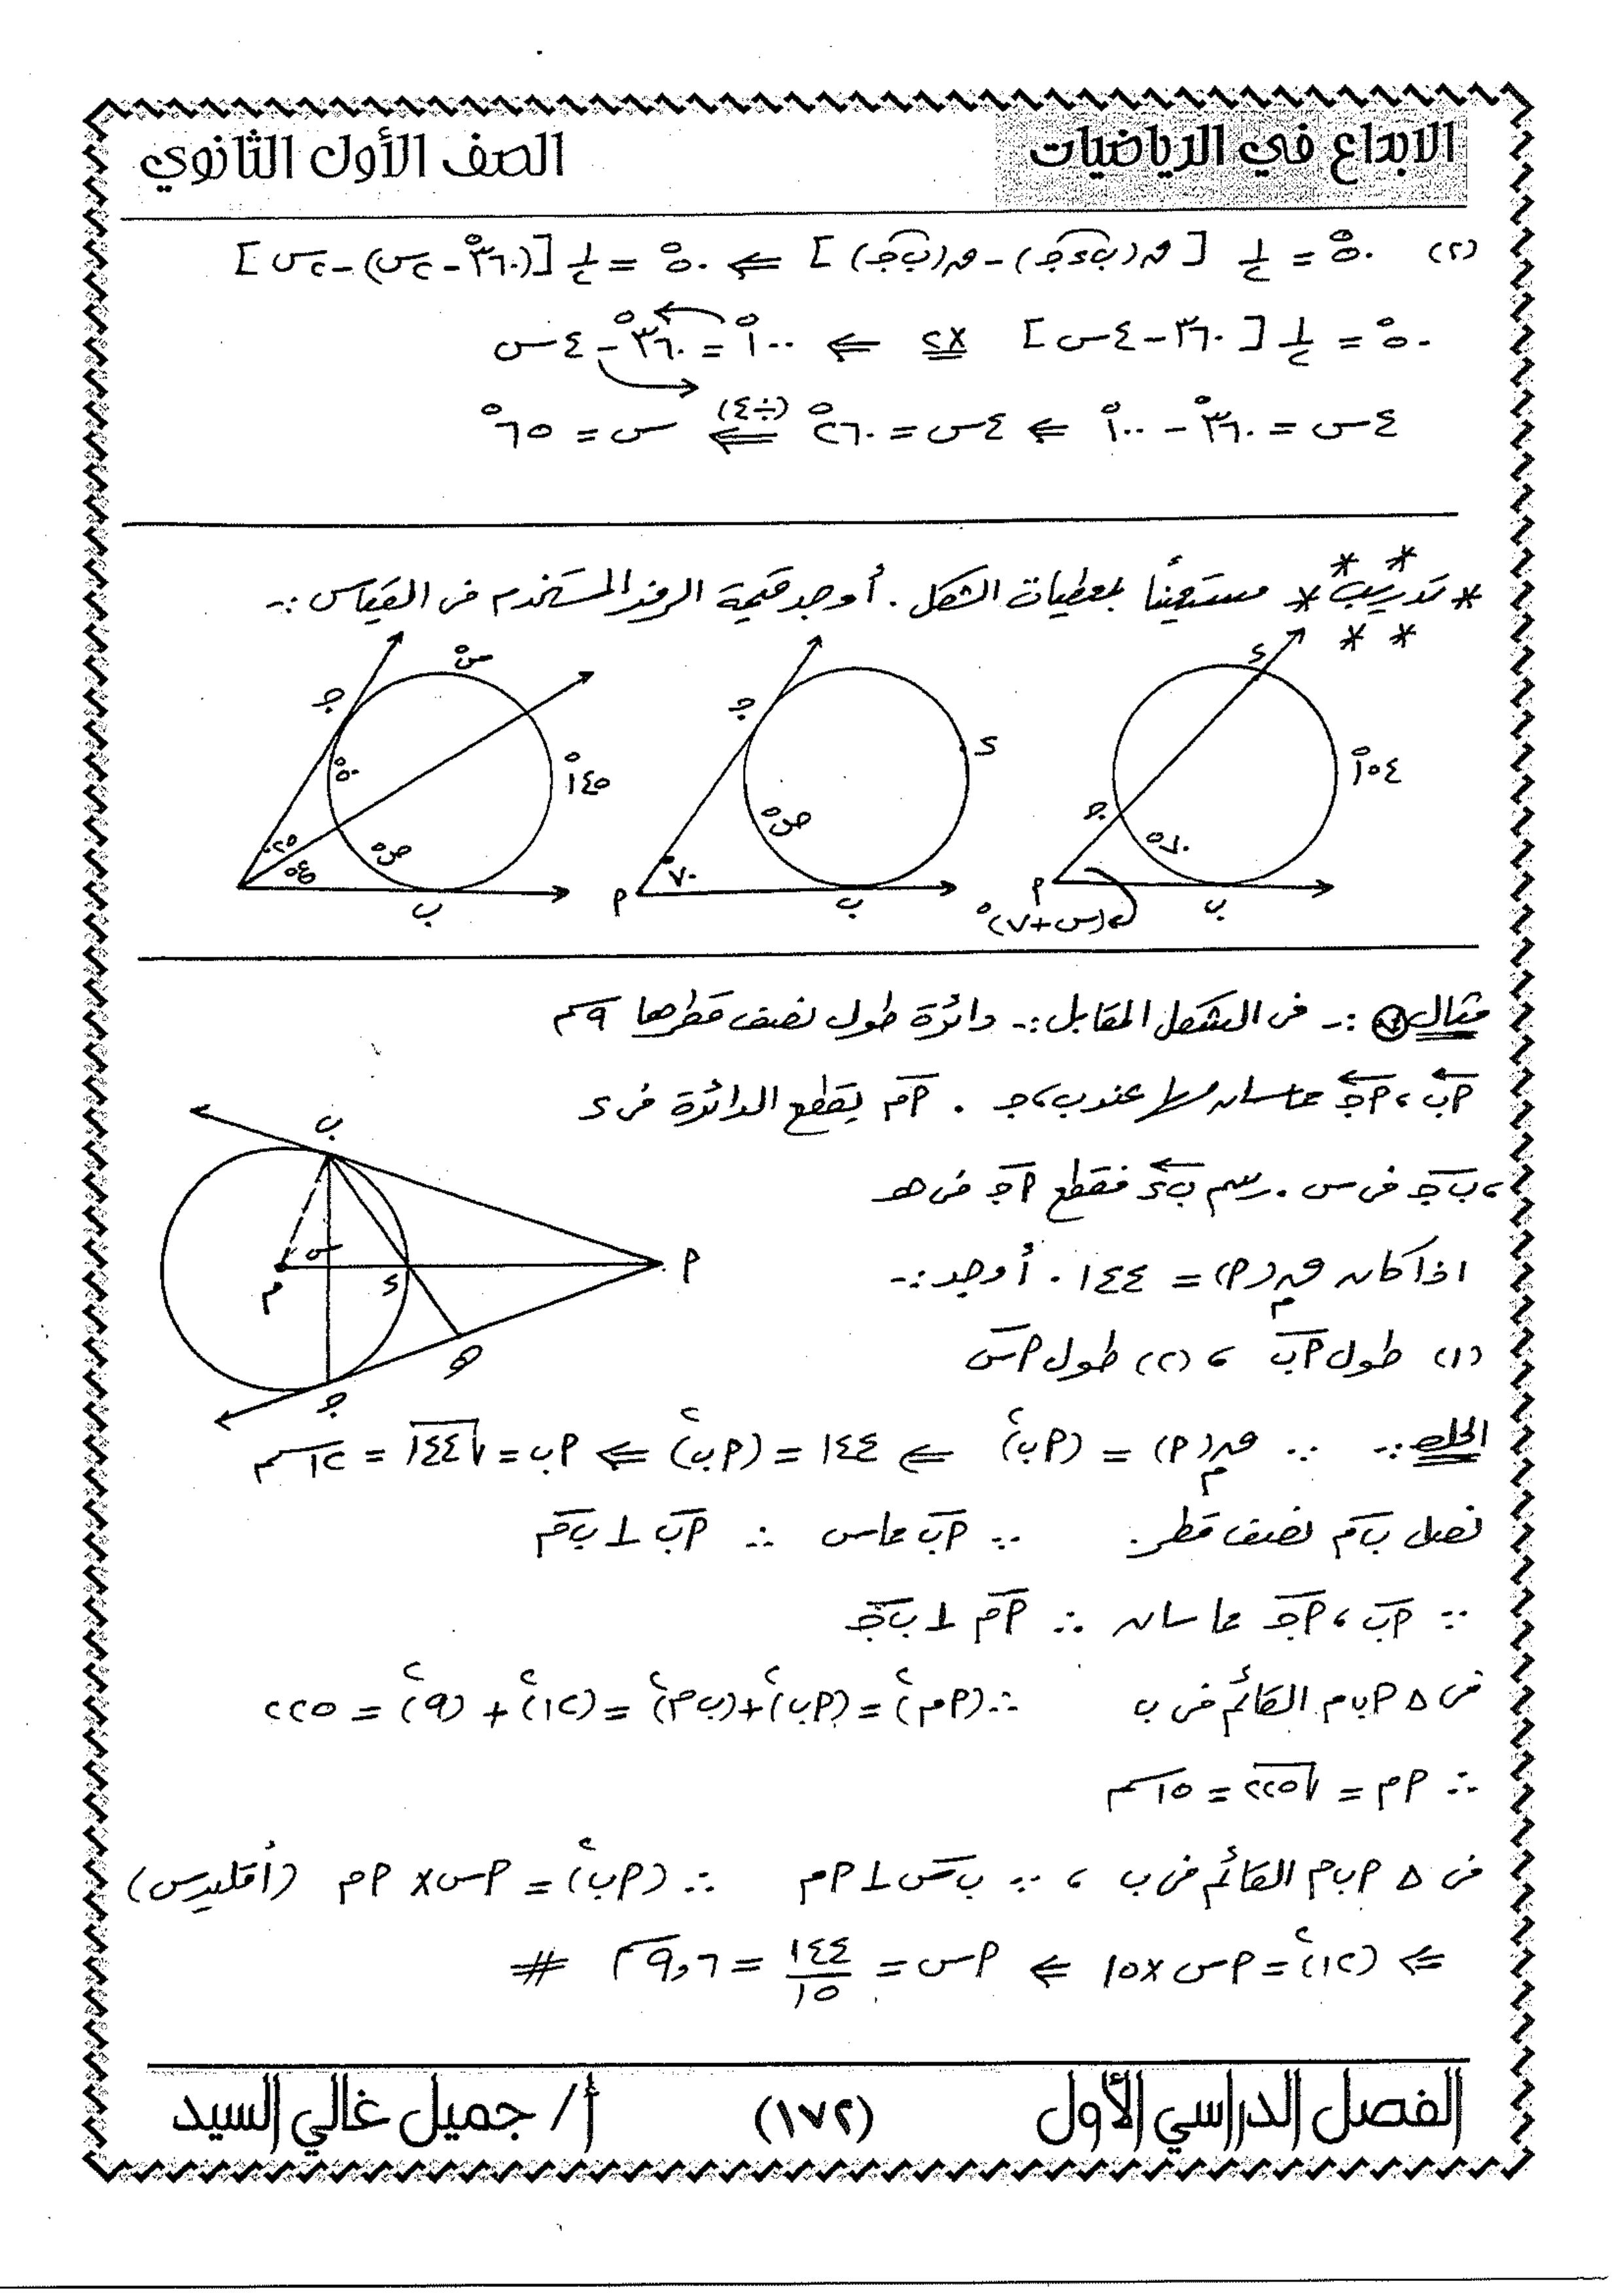 الابداع في الرياضيات
الصف الأول الثانوي
(٢) ٥٠° = ١/٢ [ ق(ب د ج) - ق(ب ج) ] ⇐ ٥٠° = ١/٢ [(٣٦٠° - ٢س) - ٢س]
٥٠° = ١/٢ [٣٦٠ - ٤س] ×٢ ⇐ ١٠٠° = ٣٦٠° - ٤س
٤س = ٣٦٠° - ١٠٠° ⇐ ٤س = ٢٦٠° (÷٤) ⇐ س = ٦٥°
* تدريب * مستعيناً بمعطيات الشكل. أوجد قيمة الرمز المستخدم فى القياس :-
د
١٥٤°
ج
٧٠°
م
ب
(س+٧)°
ج
د
ص°
٧٠°
م
ب
ج
س°
٥٠°
١٤٥°
٢٥°
ع°
ص°
ب
مثال :- فى الشكل المقابل :- دائرة طول نصف قطرها ٩سم
أب ، أج مماسان لها عند ب ، ج . أم يقطع الدائرة فى د
، ب ج فى س . رسم ب د فقطع أج فى هـ
اذا كان قم(أ) = ١٤٤ . أوجد :-
(١) طول أب ، (٢) طول أس
ب
س
م
د
أ
هـ
ج
الحل :- ∵ قم(أ) = (أب)٢ ⇐ ١٤٤ = (أب)٢ ⇐ أب = √١٤٤ = ١٢سم
نصل ب م نصف قطر . ∵ أب مماس ∴ أب ⊥ ب م
∵ أب ، أج مماسان ∴ أم ⊥ ب ج
فى Δ أب م القائم فى ب ∴ (أم)٢ = (أب)٢ + (ب م)٢ = (١٢)٢ + (٩)٢ = ٢٢٥
∴ أم = √٢٢٥ = ١٥سم
فى Δ أب م القائم فى ب ، ∵ ب س ⊥ أم ∴ (أب)٢ = أس × أم (أقليدس)
⇐ (١٢)٢ = أس × ١٥ ⇐ أس = ١٤٤/١٥ = ٩,٦سم #
الفصل الدراسي الأول
(١٧٢)
أ / جميل غالي السيد